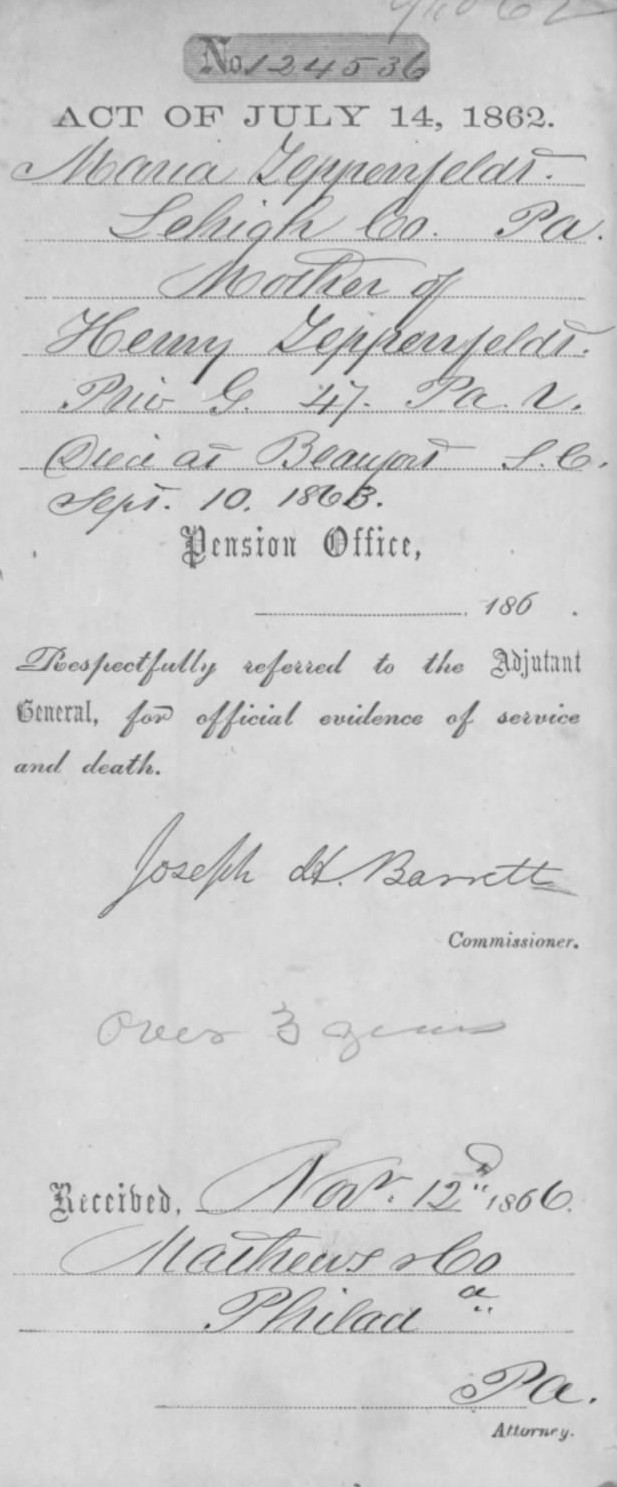 No. 124536
ACT OF JULY 14, 1862.
Maria Zeppenfeldt.
Lehigh Co. Pa.
Mother of
Henry Zeppenfeldt.
Priv G. 47. Pa. V.
Died at Beaufort S.C.
Sept. 10. 1863.
Pension Office,
186 .
Respectfully referred to the Adjutant
General, for official evidence of service
and death.
Joseph H. Barrett
Commissioner.
Over 3 years
Received, Nov. 12" 1866.
Mathews & Co
Philad a
Pa.
Attorney.